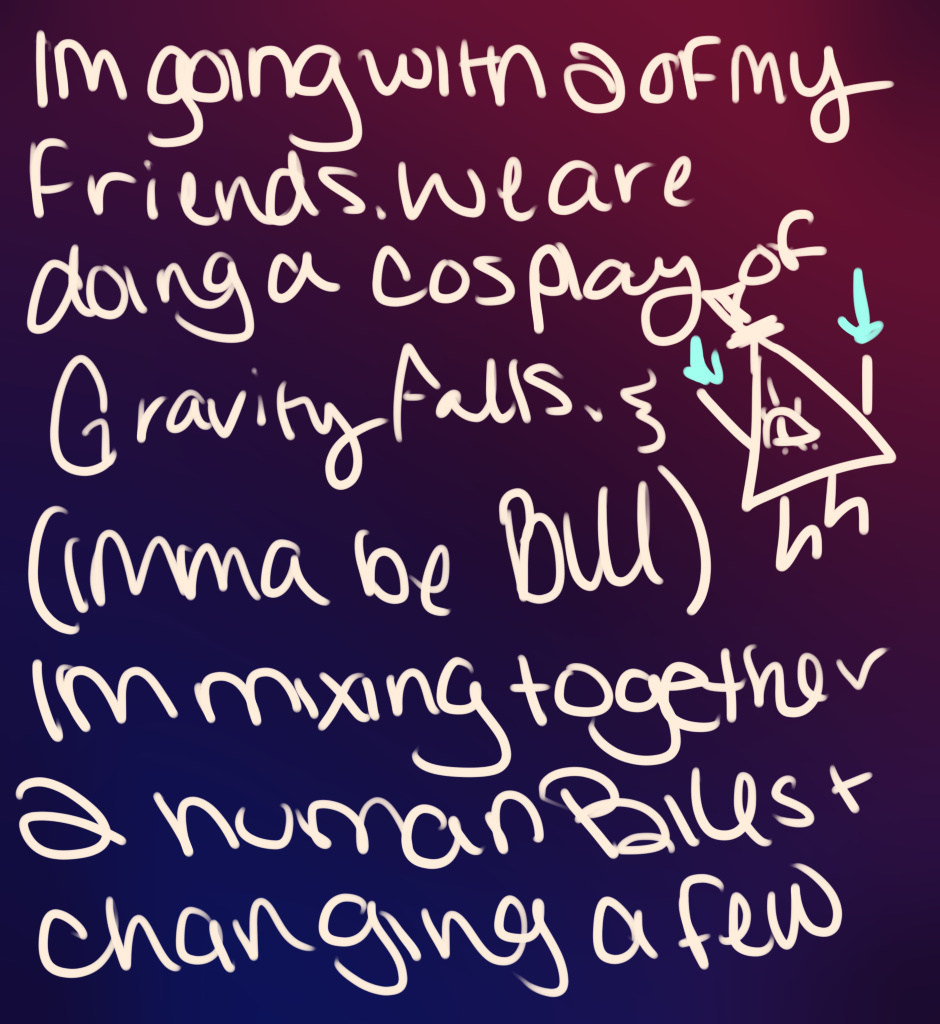 Im going with 2 of my
Friends. we are
doing a cosplay of
Gravity falls.
(imma be Bill)
Im mixing together
2 human Billes +
changing a few